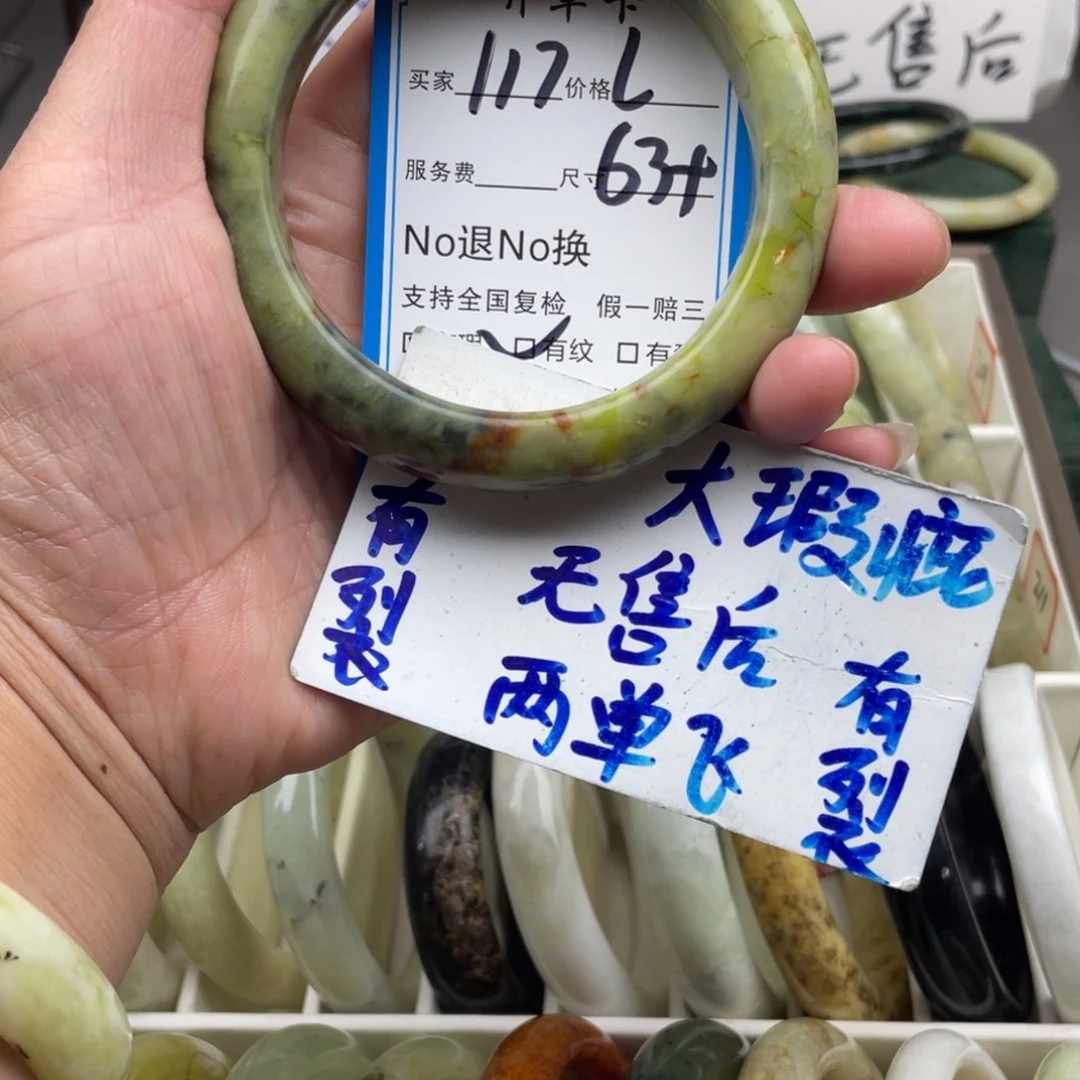 开单卡
买家 117 价格 L
服务费 尺寸 63+
No退No换
支持全国复检 假一赔三
□有纹 □有
大瑕疵
无售后
两单飞
有裂
有裂
无售后